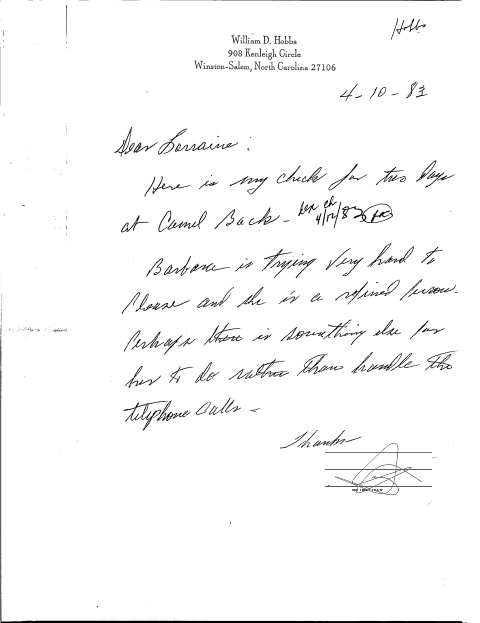 Hobbs
William D. Hobbs
908 Kenleigh Circle
Winston-Salem, North Carolina 27106
4-10-83
Dear Lorraine:
Here is my check for two days
at Camel Back -
4/12/83
Barbara is trying very hard to
please and she is a refined person.
Perhaps there is something else for
her to do rather than handle the
telephone calls -
Thanks